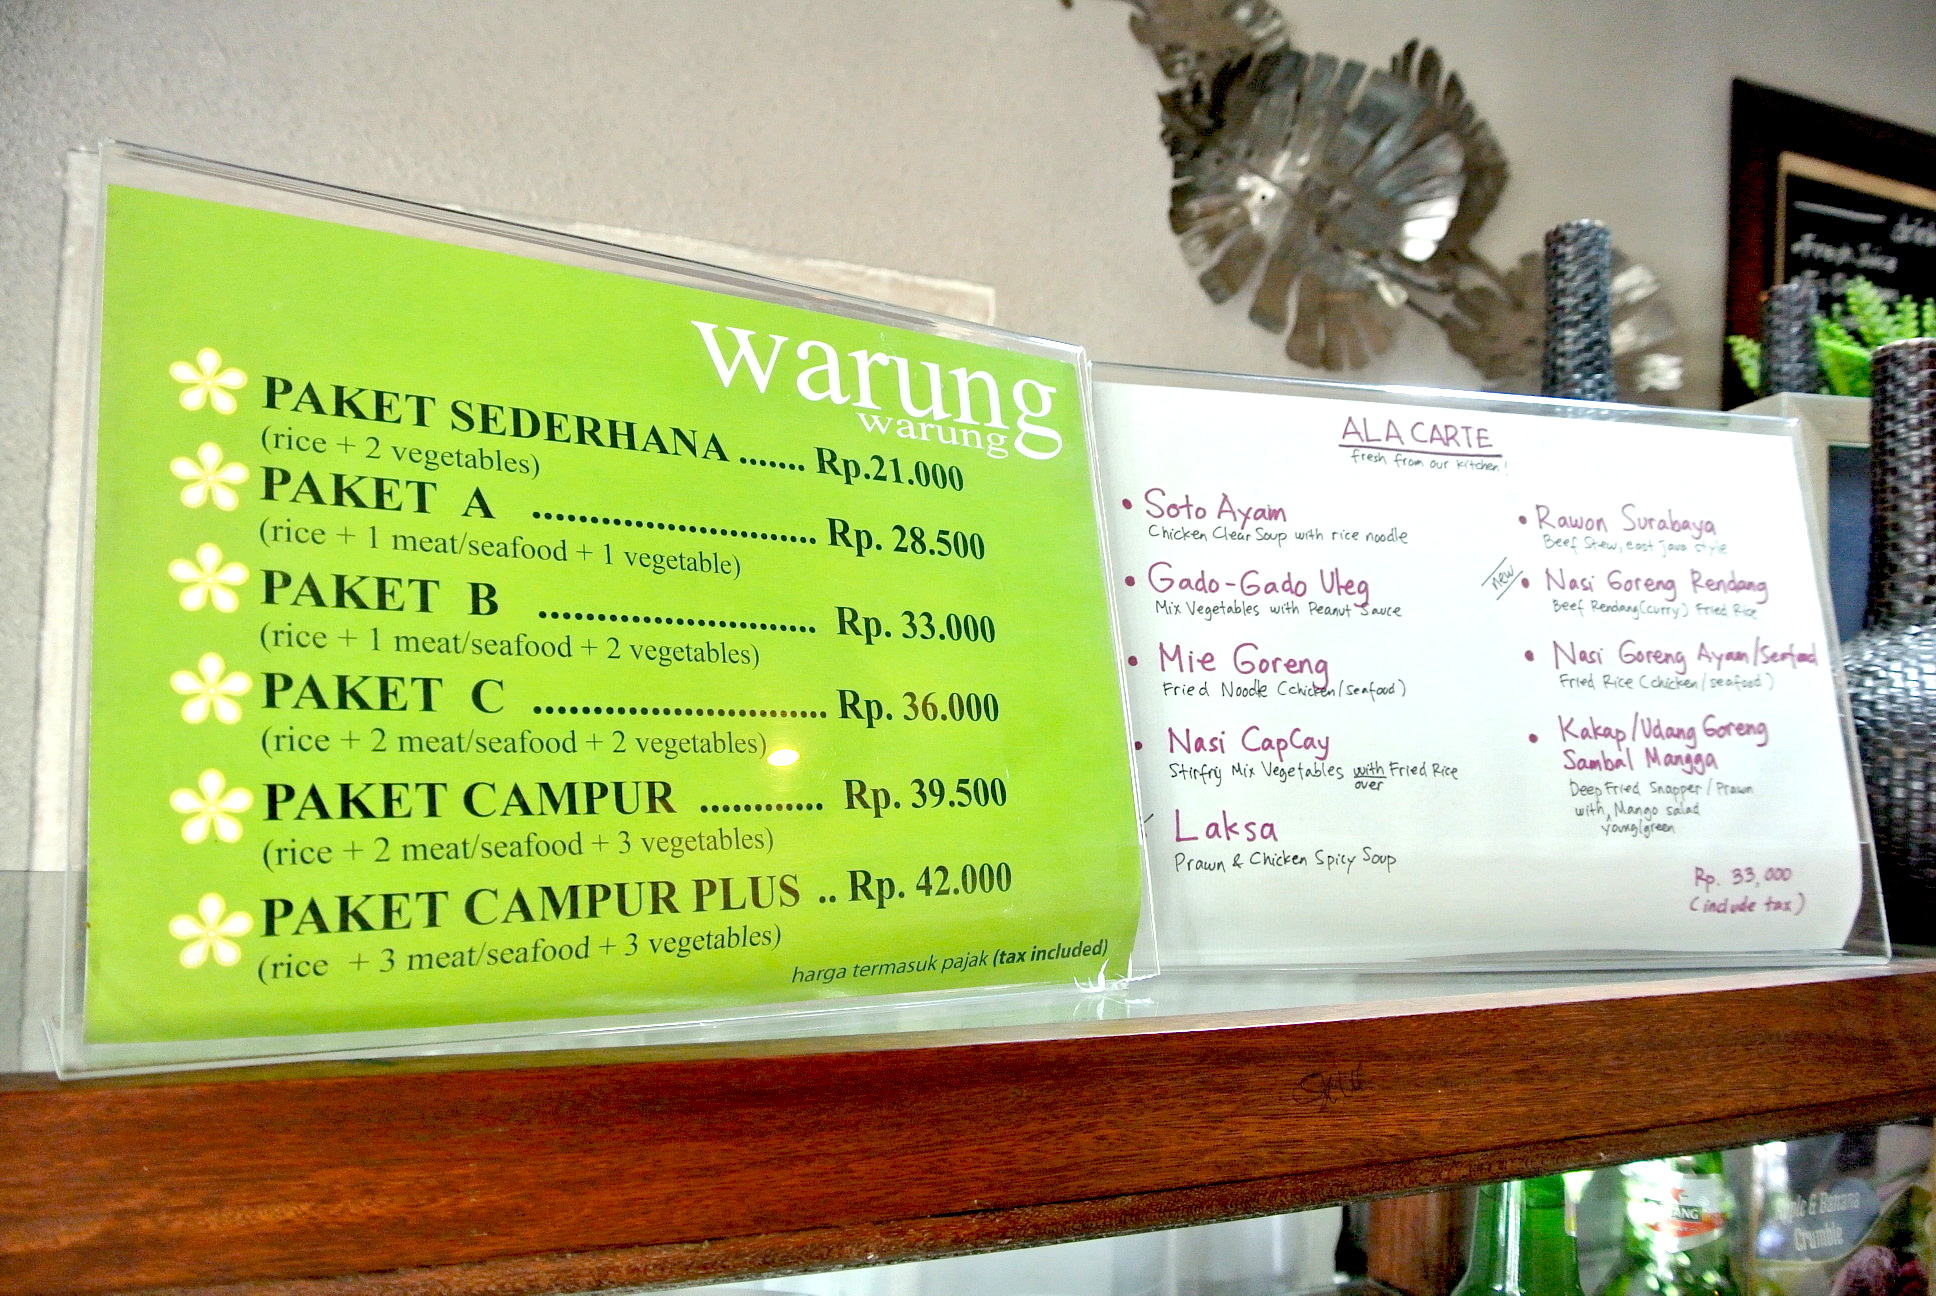 warung
warung
PAKET SEDERHANA ....... Rp.21.000
(rice + 2 vegetables)
PAKET A ........................ Rp. 28.500
(rice + 1 meat/seafood + 1 vegetable)
PAKET B ........................ Rp. 33.000
(rice + 1 meat/seafood + 2 vegetables)
PAKET C ......................... Rp. 36.000
(rice + 2 meat/seafood + 2 vegetables)
PAKET CAMPUR ............ Rp. 39.500
(rice + 2 meat/seafood + 3 vegetables)
PAKET CAMPUR PLUS .. Rp. 42.000
(rice + 3 meat/seafood + 3 vegetables)
harga termasuk pajak (tax included)
ALA CARTE
fresh from our kitchen!
• Soto Ayam
Chicken Clear Soup with rice noodle
• Gado-Gado Uleg
Mix Vegetables with Peanut Sauce
• Mie Goreng
Fried Noodle (chicken/seafood)
• Nasi CapCay
Stirfry Mix Vegetables with Fried Rice
over
Laksa
Prawn & Chicken Spicy Soup
• Rawon Surabaya
Beef Stew, east java style
new • Nasi Goreng Rendang
Beef Rendang (curry) Fried Rice
• Nasi Goreng Ayam/Seafood
Fried Rice (chicken/seafood)
• Kakap/Udang Goreng
Sambal Mangga
Deep Fried Snapper/Prawn
with Mango salad
young/green
Rp. 33,000
(include tax)
Fresh Juice
& Banana
Crumble